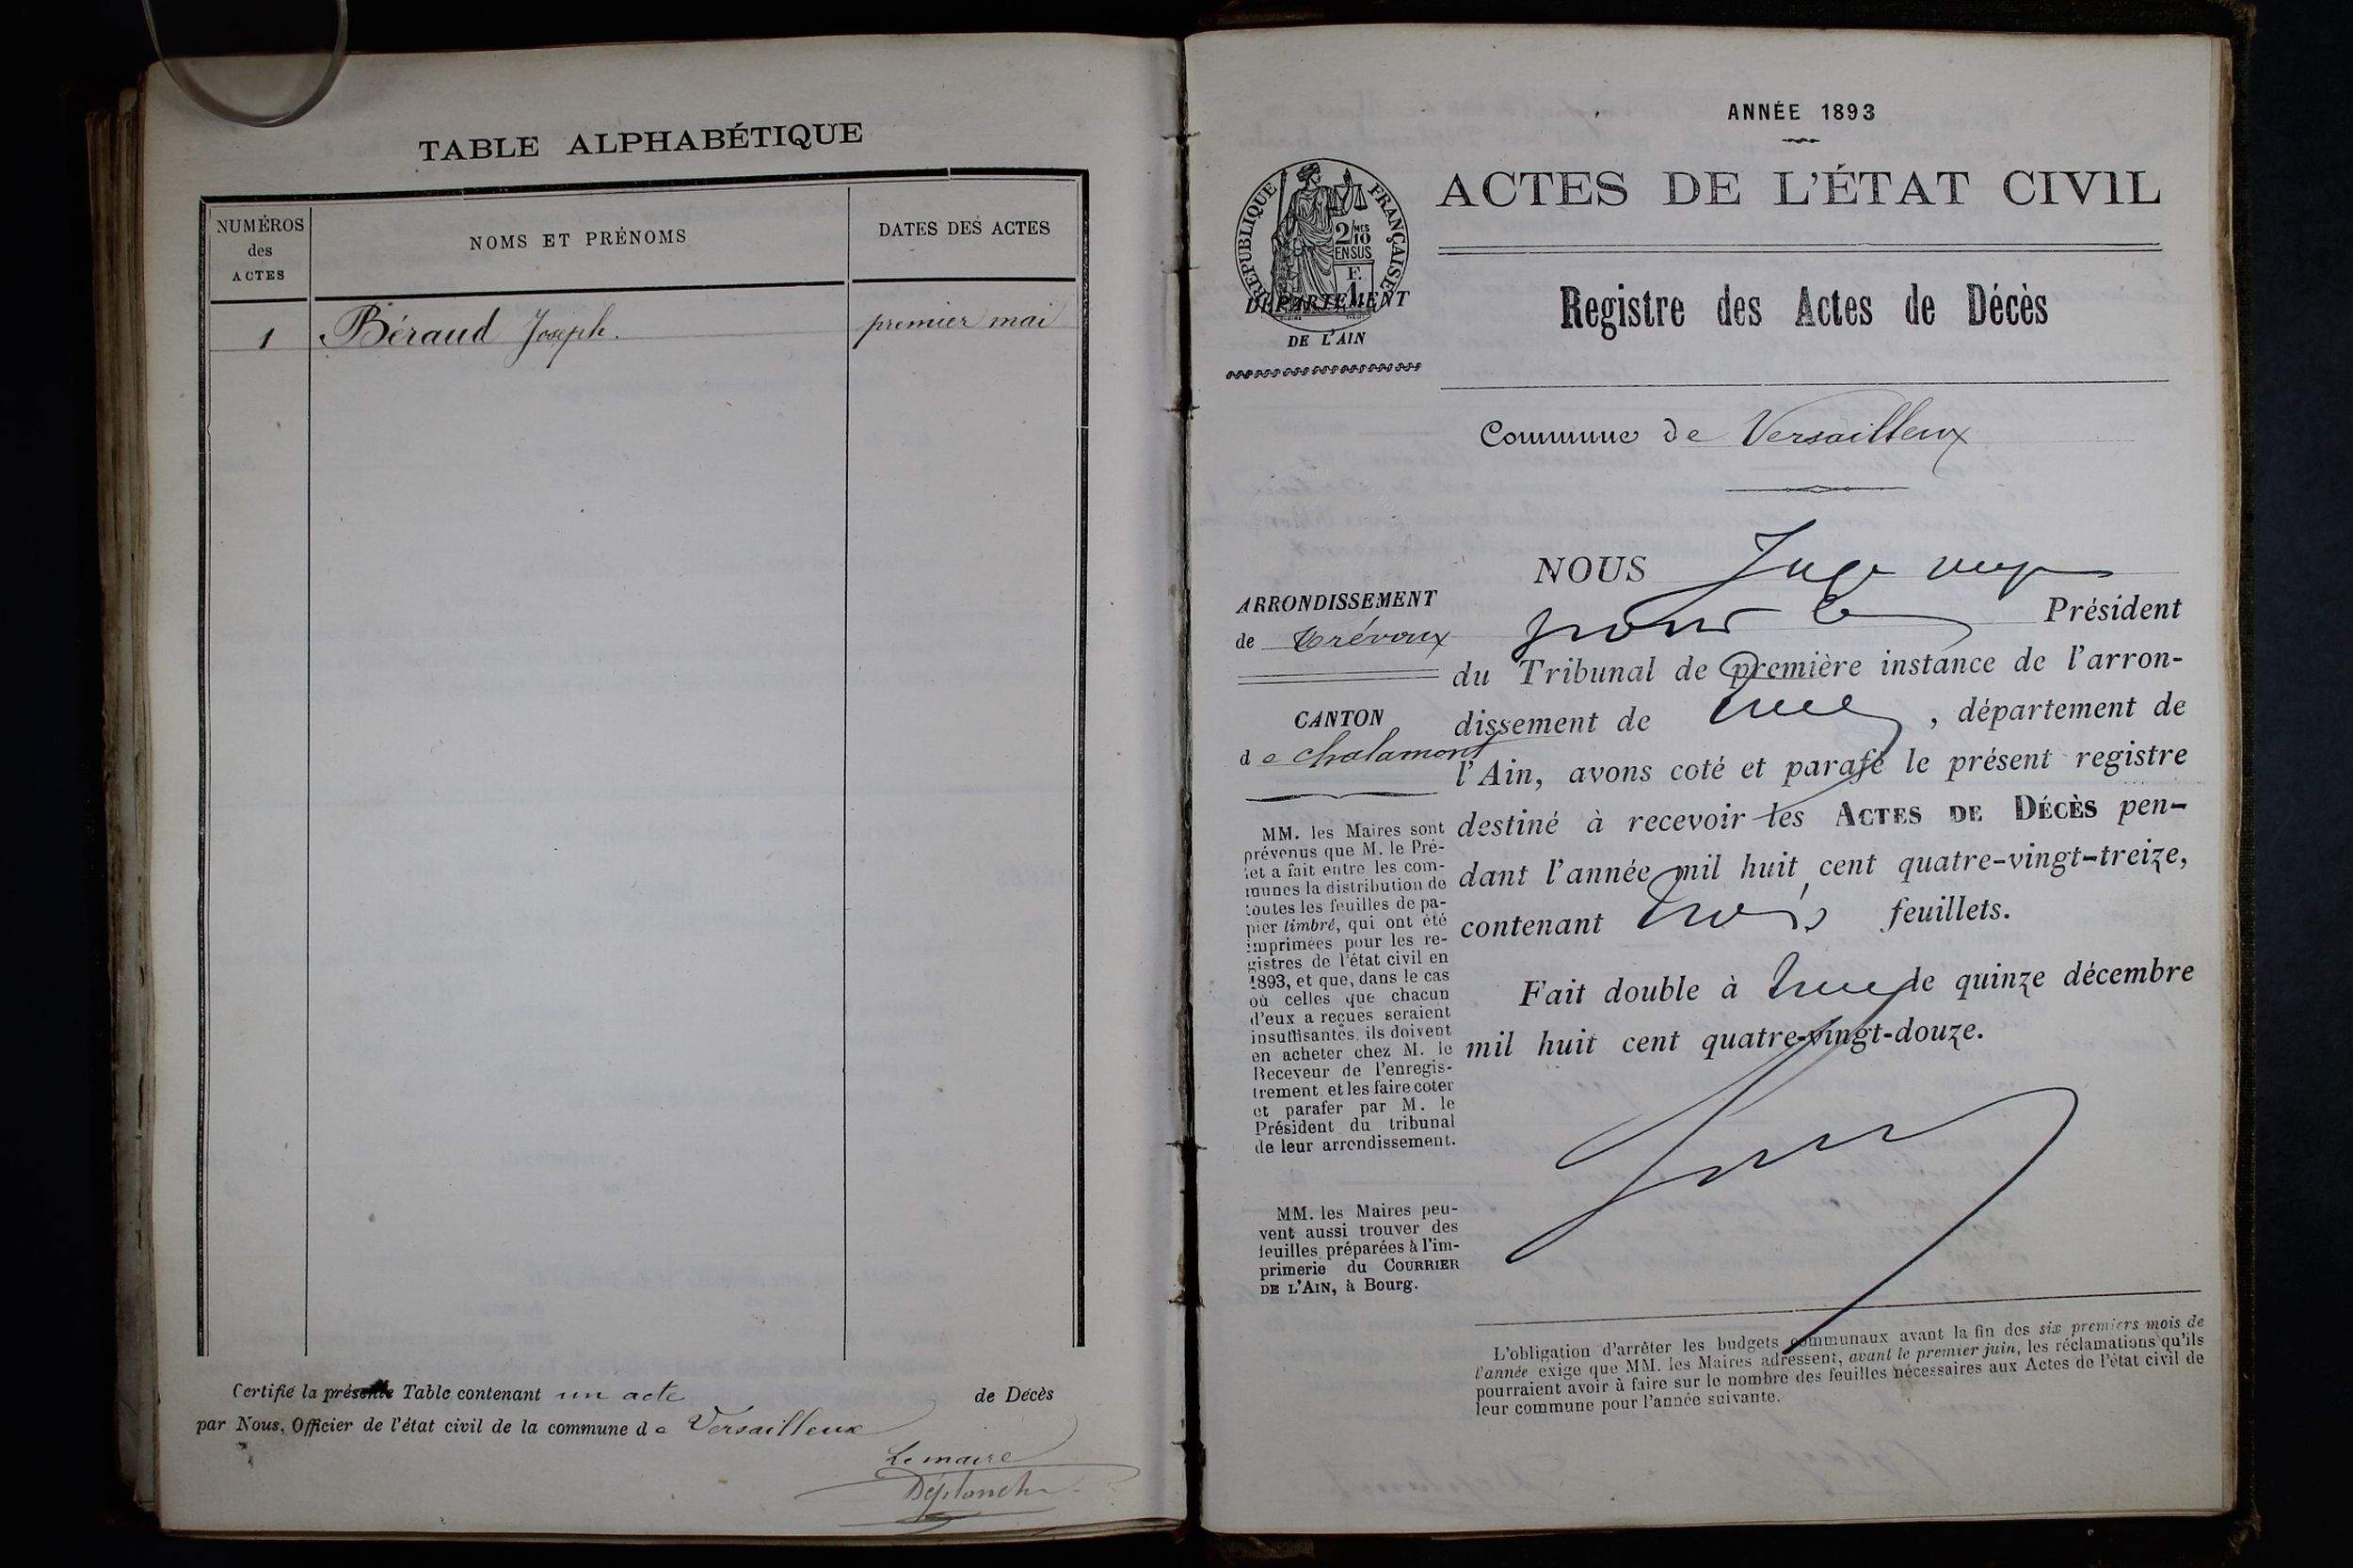 TABLE ALPHABÉTIQUE
NUMÉROS
des
ACTES
NOMS ET PRÉNOMS
DATES DES ACTES
1 Béraud Joseph. premier mai
Certifié la présente Table contenant un acte de Décès
par Nous, Officier de l'état civil de la commune de Versailleux
Le maire
Déplanche
ANNÉE 1893
RÉPUBLIQUE FRANÇAISE
2/10
MES
EN SUS
F.
DÉPARTEMENT
DE L'AIN
ACTES DE L'ÉTAT CIVIL
Registre des Actes de Décès
Commune de Versailleux
ARRONDISSEMENT
de Trévoux
CANTON
de Chalamont
MM. les Maires sont
prévenus que M. le Pré-
fet a fait entre les com-
munes la distribution de
toutes les feuilles de pa-
pier timbré, qui ont été
imprimées pour les re-
gistres de l'état civil en
1893, et que, dans le cas
où celles que chacun
d'eux a reçues seraient
insuffisantes, ils doivent
en acheter chez M. le
Receveur de l'enregis-
trement et les faire coter
et parafer par M. le
Président du tribunal
de leur arrondissement.
MM. les Maires peu-
vent aussi trouver des
feuilles préparées à l'im-
primerie du COURRIER
DE L'AIN, à Bourg.
NOUS Juge
pour le Président
du Tribunal de première instance de l'arron-
dissement de , département de
l'Ain, avons coté et parafé le présent registre
destiné à recevoir les ACTES DE DÉCÈS pen-
dant l'année mil huit cent quatre-vingt-treize,
contenant trois feuillets.
Fait double à le quinze décembre
mil huit cent quatre-vingt-douze.
L'obligation d'arrêter les budgets communaux avant la fin des six premiers mois de
l'année exige que MM. les Maires adressent, avant le premier juin, les réclamations qu'ils
pourraient avoir à faire sur le nombre des feuilles nécessaires aux Actes de l'état civil de
leur commune pour l'année suivante.